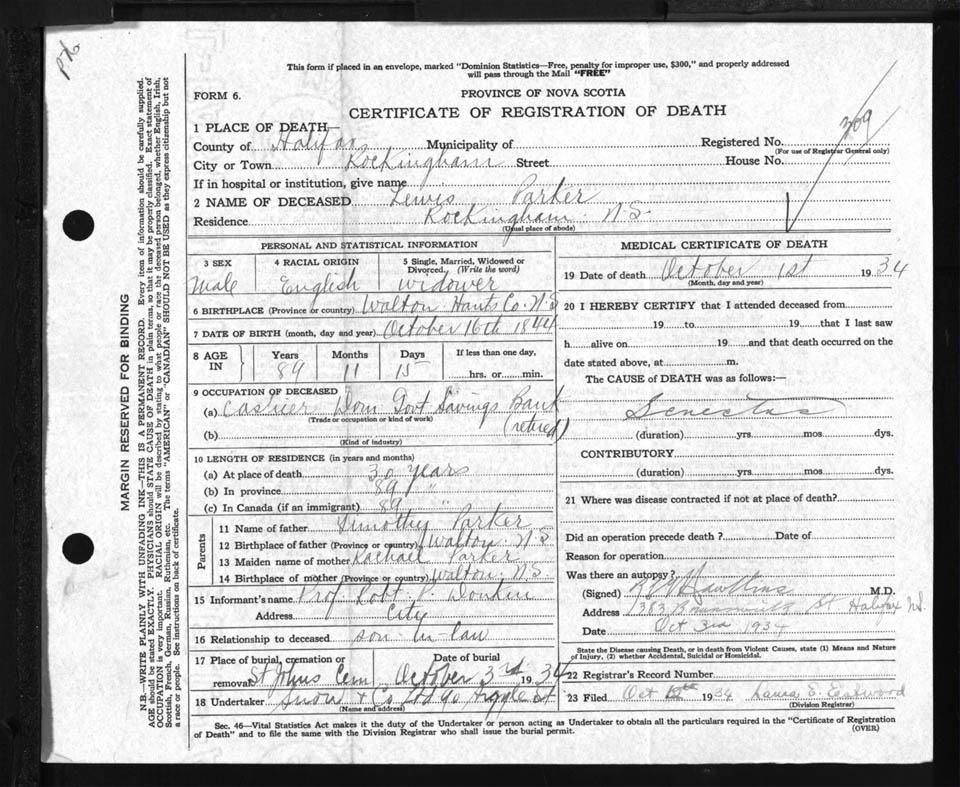 This form if placed in an envelope, marked "Dominion Statistics—Free, penalty for improper use, $300," and properly addressed
will pass through the Mail "FREE"
FORM 6.
PROVINCE OF NOVA SCOTIA
CERTIFICATE OF REGISTRATION OF DEATH
1 PLACE OF DEATH—
County of Halifax Municipality of Registered No. 309
(For use of Registrar General only)
City or Town Rockingham Street House No.
If in hospital or institution, give name
2 NAME OF DECEASED Lewis Parker
Residence Rockingham N.S.
(Usual place of abode)
PERSONAL AND STATISTICAL INFORMATION
3 SEX 4 RACIAL ORIGIN 5 Single, Married, Widowed or
Divorced. (Write the word)
Male English widower
6 BIRTHPLACE (Province or country) Walton Hants Co. N.S
7 DATE OF BIRTH (month, day and year) October 16th 1844
8 AGE IN Years Months Days If less than one day,
89 11 15 hrs. or min.
9 OCCUPATION OF DECEASED
(a) Cashier Dom Govt Savings Bank
(Trade or occupation or kind of work)
(retired)
(b)
(Kind of industry)
10 LENGTH OF RESIDENCE (in years and months)
(a) At place of death 30 years
(b) In province 89 "
(c) In Canada (if an immigrant) 89 "
Parents
11 Name of father Timothy Parker
12 Birthplace of father (Province or country) Walton N.S
13 Maiden name of mother Rachael Parker
14 Birthplace of mother (Province or country) Walton N.S.
15 Informant's name Prof Robt P. Donkin
Address City
16 Relationship to deceased son-in-law
17 Place of burial, cremation or Date of burial
removal St Johns Cem, October 3rd 1934
18 Undertaker Snow & Co Ltd Argyle st
(Name and address)
MEDICAL CERTIFICATE OF DEATH
19 Date of death October 1st 1934
(Month, day and year)
20 I HEREBY CERTIFY that I attended deceased from
19 to 19 that I last saw
h alive on 19 and that death occurred on the
date stated above, at m.
The CAUSE of DEATH was as follows:—
Senectus
(duration) yrs. mos. dys.
CONTRIBUTORY
(duration) yrs. mos. dys.
21 Where was disease contracted if not at place of death?
Did an operation precede death? Date of
Reason for operation
Was there an autopsy?
(Signed) Hawkins M.D.
Address 1383 Brunswick St Halifax N.S.
Date Oct 3rd 1934
State the Disease causing Death, or in death from Violent Causes, state (1) Means and Nature
of Injury, (2) whether Accidental, Suicidal or Homicidal.
22 Registrar's Record Number
23 Filed Oct 1934 Laura E. Eastwood
(Division Registrar)
Sec. 46—Vital Statistics Act makes it the duty of the Undertaker or person acting as Undertaker to obtain all the particulars required in the "Certificate of Registration
of Death" and to file the same with the Division Registrar who shall issue the burial permit.
(OVER)
MARGIN RESERVED FOR BINDING
N.B.—WRITE PLAINLY WITH UNFADING INK—THIS IS A PERMANENT RECORD. Every item of information should be carefully supplied.
AGE should be stated EXACTLY. PHYSICIANS should STATE CAUSE OF DEATH in plain terms, so that it may be properly classified. Exact statement of
OCCUPATION is very important. RACIAL ORIGIN will be described by stating to what people or race the deceased person belonged, whether English, Irish,
Scottish, French, German, Russian, Ruthenian, etc. The terms "AMERICAN" or "CANADIAN" SHOULD NOT BE USED as they express citizenship but not
a race or people. See instructions on back of certificate.